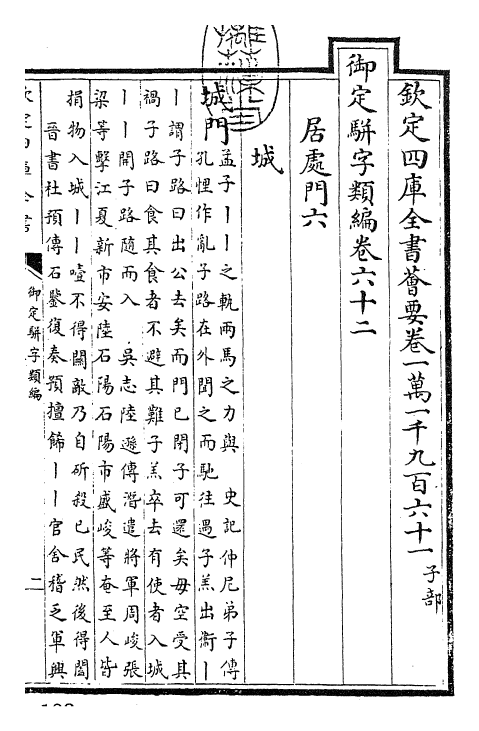 欽定四庫全書薈要卷一萬一千九百六十一子部
御定駢字類編卷六十二
居處門六
城
城門孟子丨丨之軌兩馬之力與 史記仲尼弟子傳
孔悝作亂子路在外聞之而馳往遇子羔出衛丨
丨謂子路曰出公去矣而門已閉子可還矣毋空受其
禍子路曰食其食者不避其難子羔卒去有使者入城
丨丨開子路隨而入 吳志陸遜傳潛遣將軍周峻張
梁等擊江夏新市安陸石陽石陽市盛峻等奄至人皆
捐物入城丨丨噎不得關敵乃自斫殺已民然後得闔
晉書杜預傳石鑒復奏預擅飾丨丨官舍稽乏軍興
御定駢字類編
二